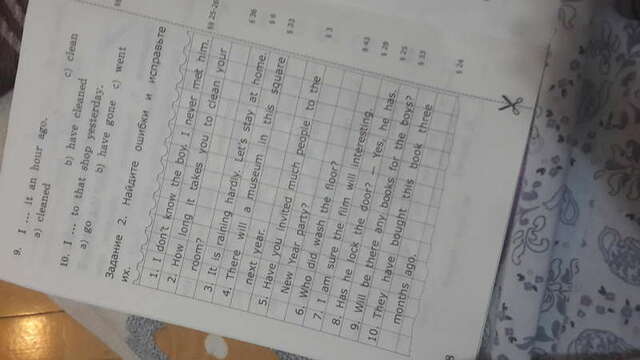 9. I ... it an hour ago.
a) cleaned b) have cleaned c) clean
10. I ... to that shop yesterday.
a) go b) have gone c) went
Задание 2. Найдите ошибки и исправьте
их.
1. I don't know the boy. I never met him.
2. How long it takes you to clean your
room?
3. It is raining hardly. Let's stay at home.
4. There will a museum in this square
next year.
5. Have you invited much people to the
New Year party?
6. Who did wash the floor?
7. I am sure the film will interesting.
8. Has he lock the door? — Yes, he has.
9. Will be there any books for the boys?
10. They have bought this book three
months ago.
§ 25-26
§ 36
§ 6
§ 22
§ 3
§ 43
§ 28
§ 25
§ 33
§ 24
8